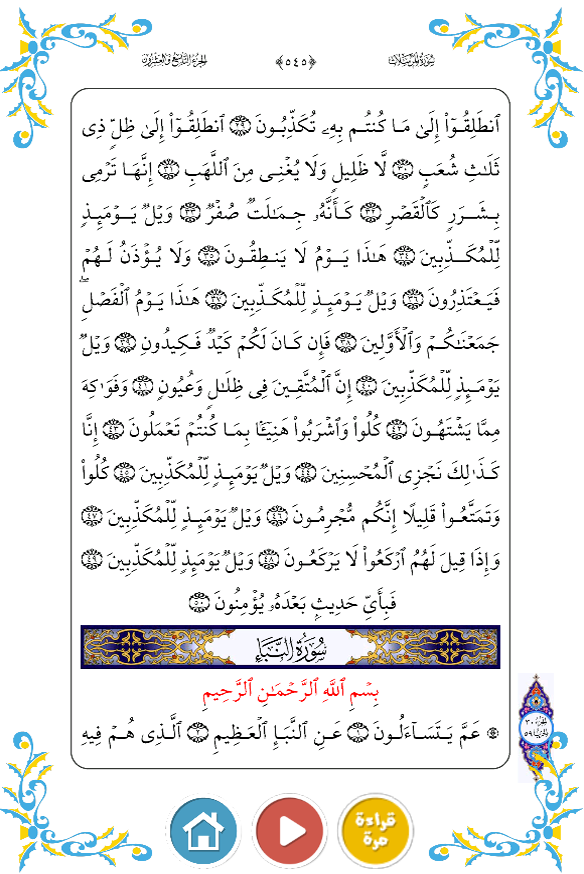 سُورَةُ المُرْسَلَاتِ ﴿٥٤٥﴾ الجُزْءُ التَّاسِعُ وَالعِشْرُونَ
ٱنطَلِقُوٓا۟ إِلَىٰ مَا كُنتُم بِهِۦ تُكَذِّبُونَ ٢٩ ٱنطَلِقُوٓا۟ إِلَىٰ ظِلٍّ ذِى
ثَلَٰثِ شُعَبٍ ٣٠ لَّا ظَلِيلٍ وَلَا يُغْنِى مِنَ ٱللَّهَبِ ٣١ إِنَّهَا تَرْمِى
بِشَرَرٍ كَٱلْقَصْرِ ٣٢ كَأَنَّهُۥ جِمَٰلَتٌ صُفْرٌ ٣٣ وَيْلٌ يَوْمَئِذٍ
لِّلْمُكَذِّبِينَ ٣٤ هَٰذَا يَوْمُ لَا يَنطِقُونَ ٣٥ وَلَا يُؤْذَنُ لَهُمْ
فَيَعْتَذِرُونَ ٣٦ وَيْلٌ يَوْمَئِذٍ لِّلْمُكَذِّبِينَ ٣٧ هَٰذَا يَوْمُ ٱلْفَصْلِ ۖ
جَمَعْنَٰكُمْ وَٱلْأَوَّلِينَ ٣٨ فَإِن كَانَ لَكُمْ كَيْدٌ فَكِيدُونِ ٣٩ وَيْلٌ
يَوْمَئِذٍ لِّلْمُكَذِّبِينَ ٤٠ إِنَّ ٱلْمُتَّقِينَ فِى ظِلَٰلٍ وَعُيُونٍ ٤١ وَفَوَٰكِهَ
مِمَّا يَشْتَهُونَ ٤٢ كُلُوا۟ وَٱشْرَبُوا۟ هَنِيٓـًٔۢا بِمَا كُنتُمْ تَعْمَلُونَ ٤٣ إِنَّا
كَذَٰلِكَ نَجْزِى ٱلْمُحْسِنِينَ ٤٤ وَيْلٌ يَوْمَئِذٍ لِّلْمُكَذِّبِينَ ٤٥ كُلُوا۟
وَتَمَتَّعُوا۟ قَلِيلًا إِنَّكُم مُّجْرِمُونَ ٤٦ وَيْلٌ يَوْمَئِذٍ لِّلْمُكَذِّبِينَ ٤٧
وَإِذَا قِيلَ لَهُمُ ٱرْكَعُوا۟ لَا يَرْكَعُونَ ٤٨ وَيْلٌ يَوْمَئِذٍ لِّلْمُكَذِّبِينَ ٤٩
فَبِأَىِّ حَدِيثٍۭ بَعْدَهُۥ يُؤْمِنُونَ ٥٠
سُورَةُ النَّبَإِ
بِسْمِ ٱللَّهِ ٱلرَّحْمَٰنِ ٱلرَّحِيمِ
۞ عَمَّ يَتَسَآءَلُونَ ١ عَنِ ٱلنَّبَإِ ٱلْعَظِيمِ ٢ ٱلَّذِى هُمْ فِيهِ
الجزء ٣٠
الحزب ٥٩
قراءة
مرة